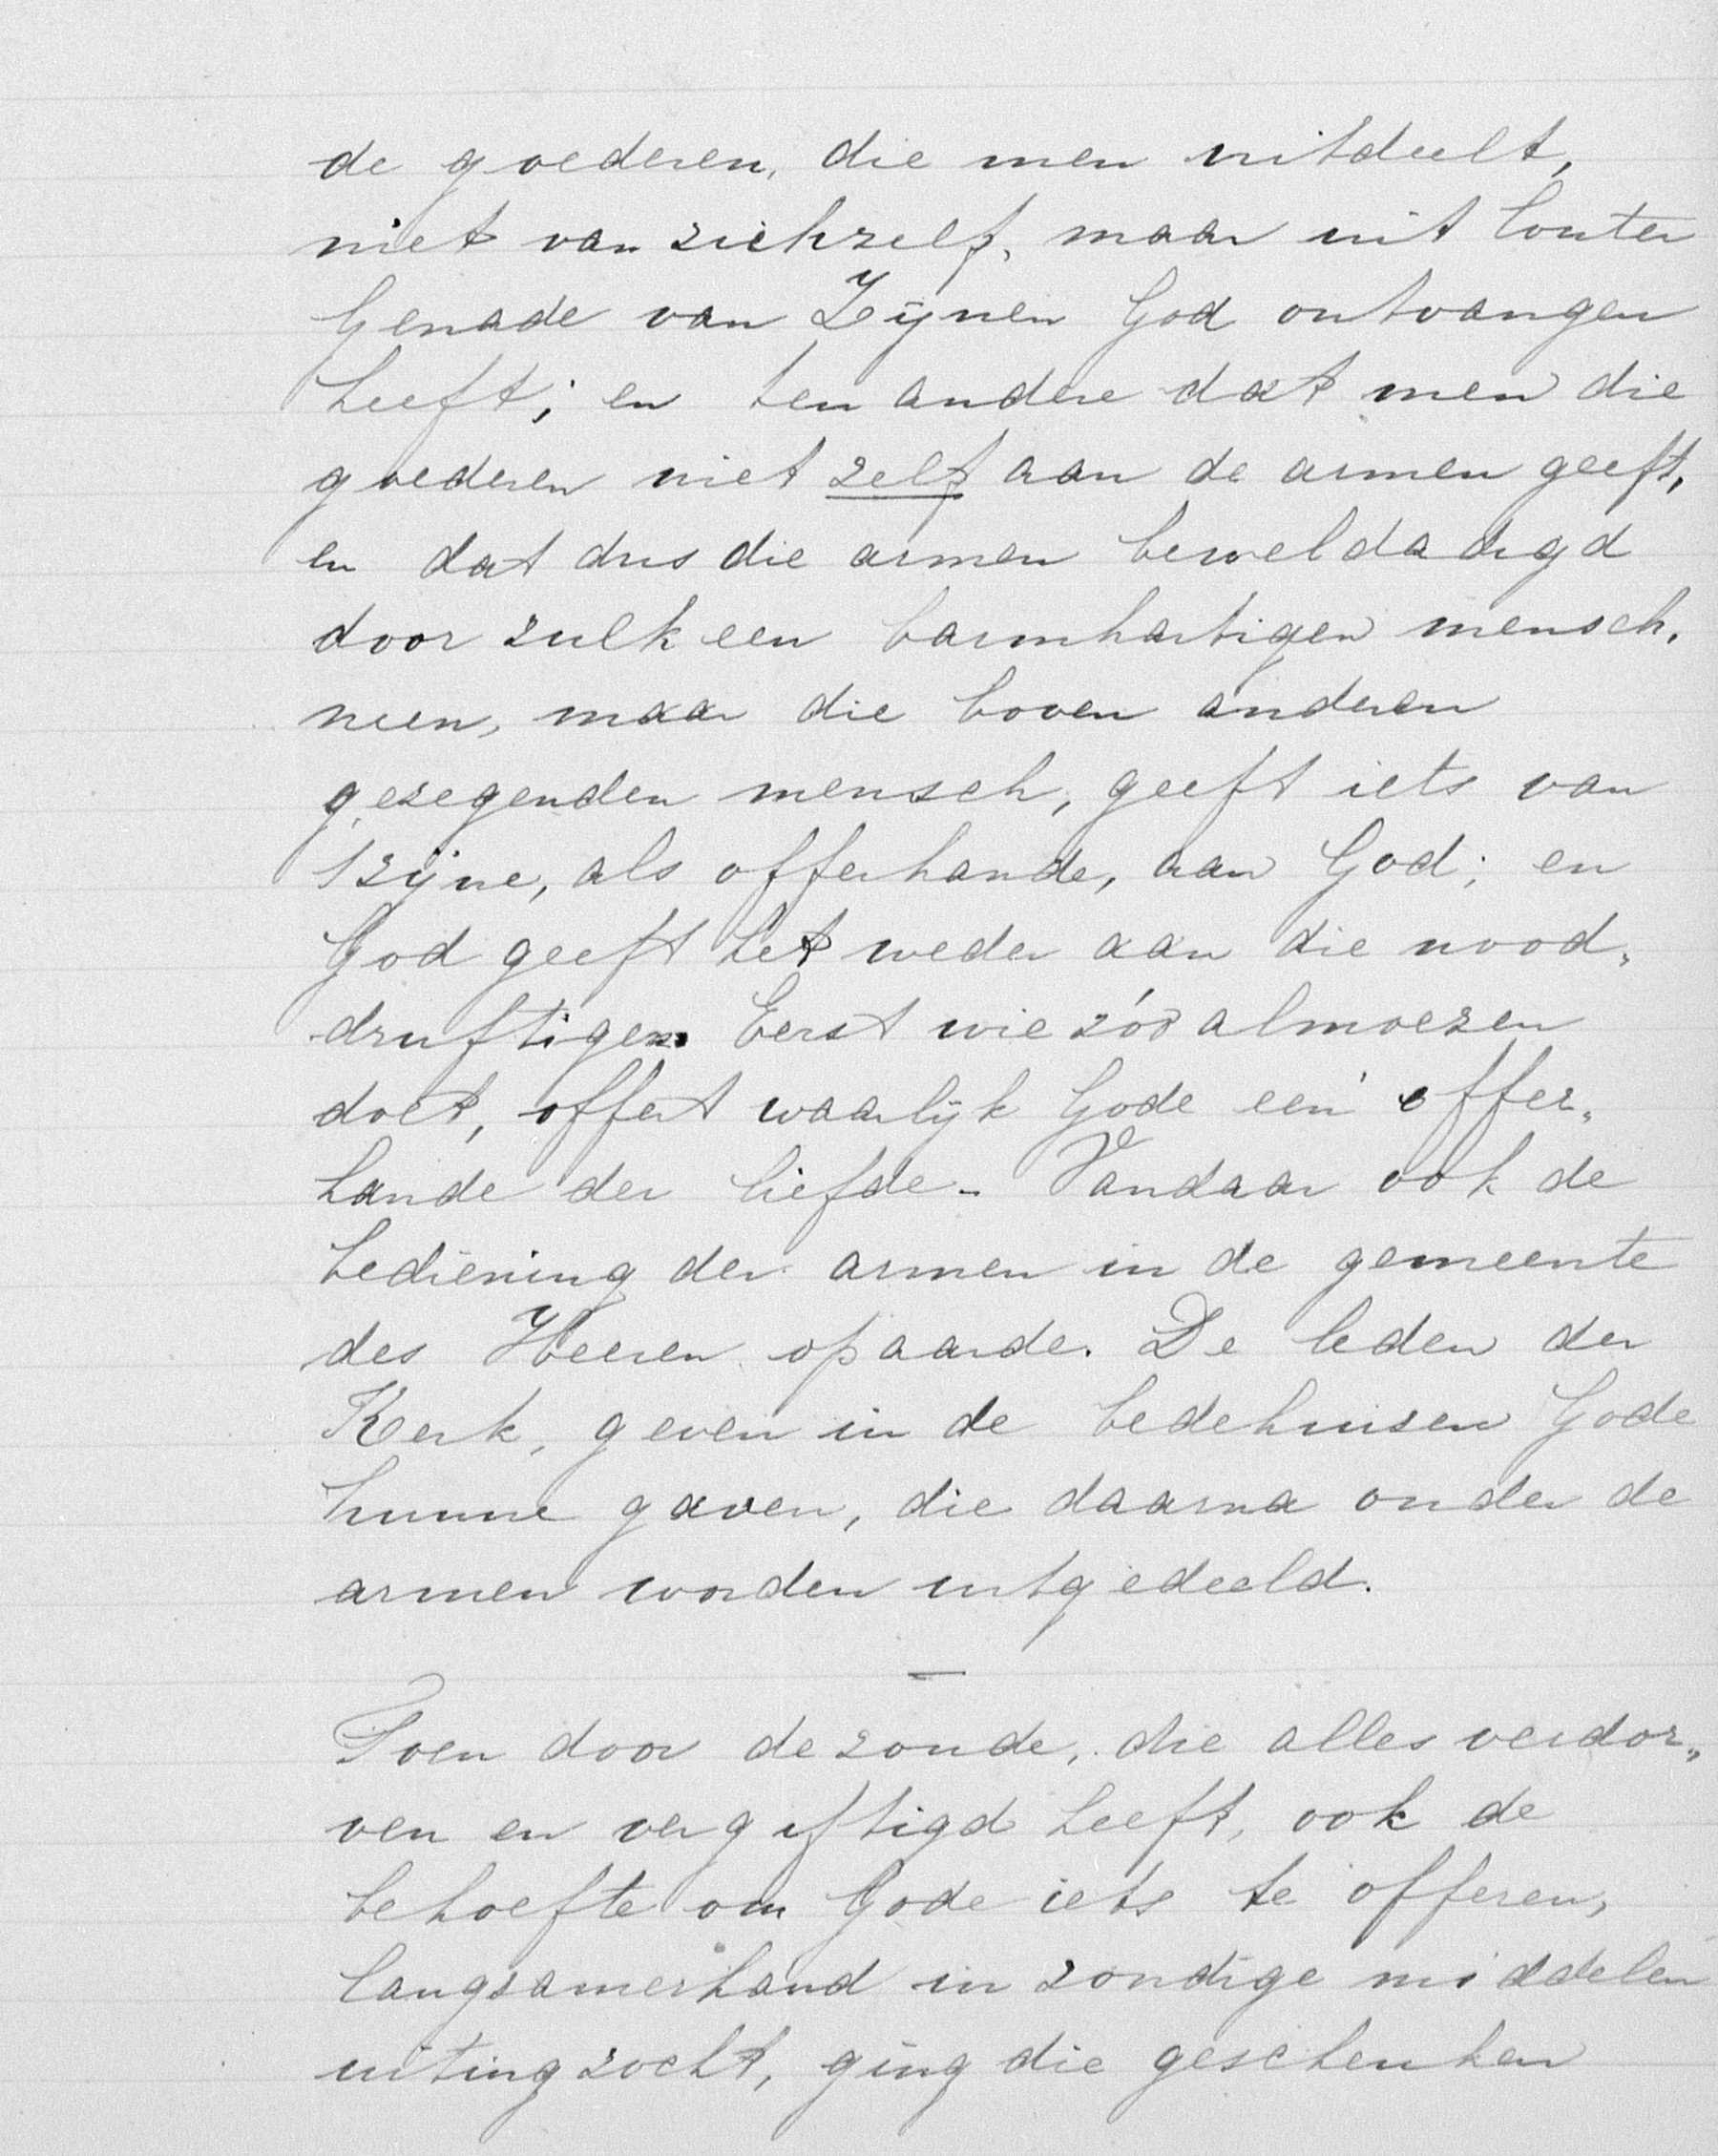 de goederen, die men uitdeelt,
niet van zichzelf, maar uit louter
Genade van Zijnen God ontvangen
heeft; en ten andere dat men die
goederen niet zelf aan de armen geeft,
en dat dus die armen beweldadigd
door zulk een barmhartigen mensch,
neen, maar die boven anderen
gezegenden mensch, geeft iets van
't zijne, als offerhande, aan God; en
God geeft het weder aan die nood„
druftigen. Eerst wie zóó almoezen
doet, offert waarlijk Gode een offer„
hande der liefde. Vandaar ook de
bediening der armen in de gemeente
des Heeren op aarde. De leden der
Kerk, geven in de bedehuisen Gode
hunne gaven, die daarna onder de
armen worden uitgedeeld.
—
Toen door de zonde, die alles verdor„
ven en vergiftigd heeft, ook de
behoefte om Gode iets te offeren,
langzamerhand in zondige middelen
uiting zocht, ging die geschenken